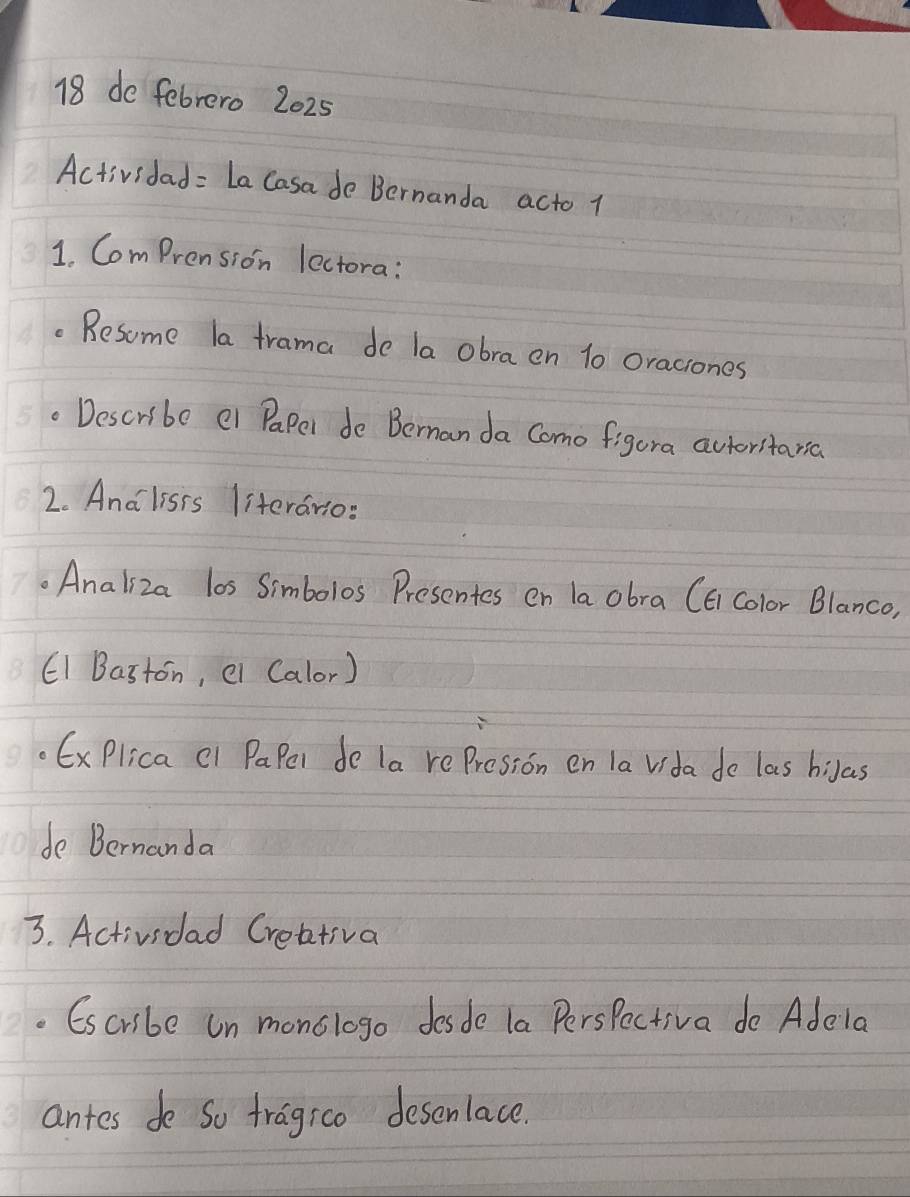 18 de febrero 2025
Actividad= La Casa de Bernanda acto 1
1. Comprensión lectora:
• Resume la trama de la obra en 10 oraciones
• Describe el Papel de Bernanda Como figura autoritaria
2. Análisis literário:
• Analiza los Simbolos Presentes en la obra (El Color Blanco,
El Bastón, el Calor)
• Explica el Papel de la represión en la vida de las hijas
de Bernanda
3. Actividad Creativa
• Escribe un monólogo desde la Perspectiva de Adela
antes de su trágico desenlace.